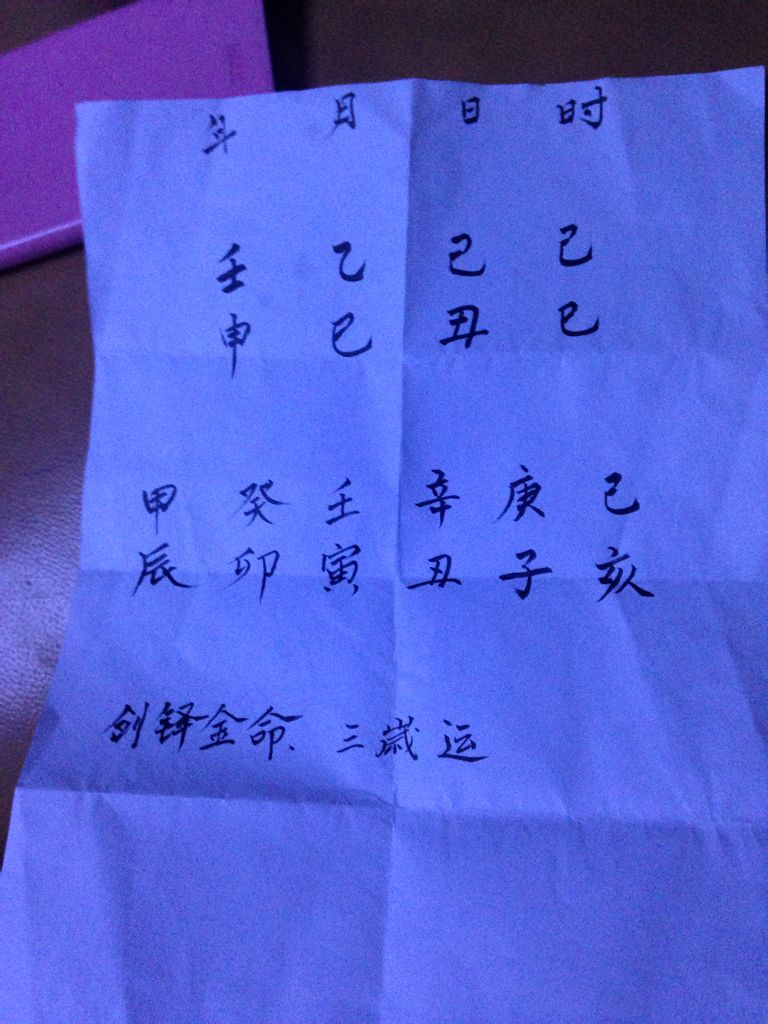 年 月 日 时
壬 乙 己 己
申 巳 丑 巳
甲 癸 壬 辛 庚 己
辰 卯 寅 丑 子 亥
剑铎金命、三歳运